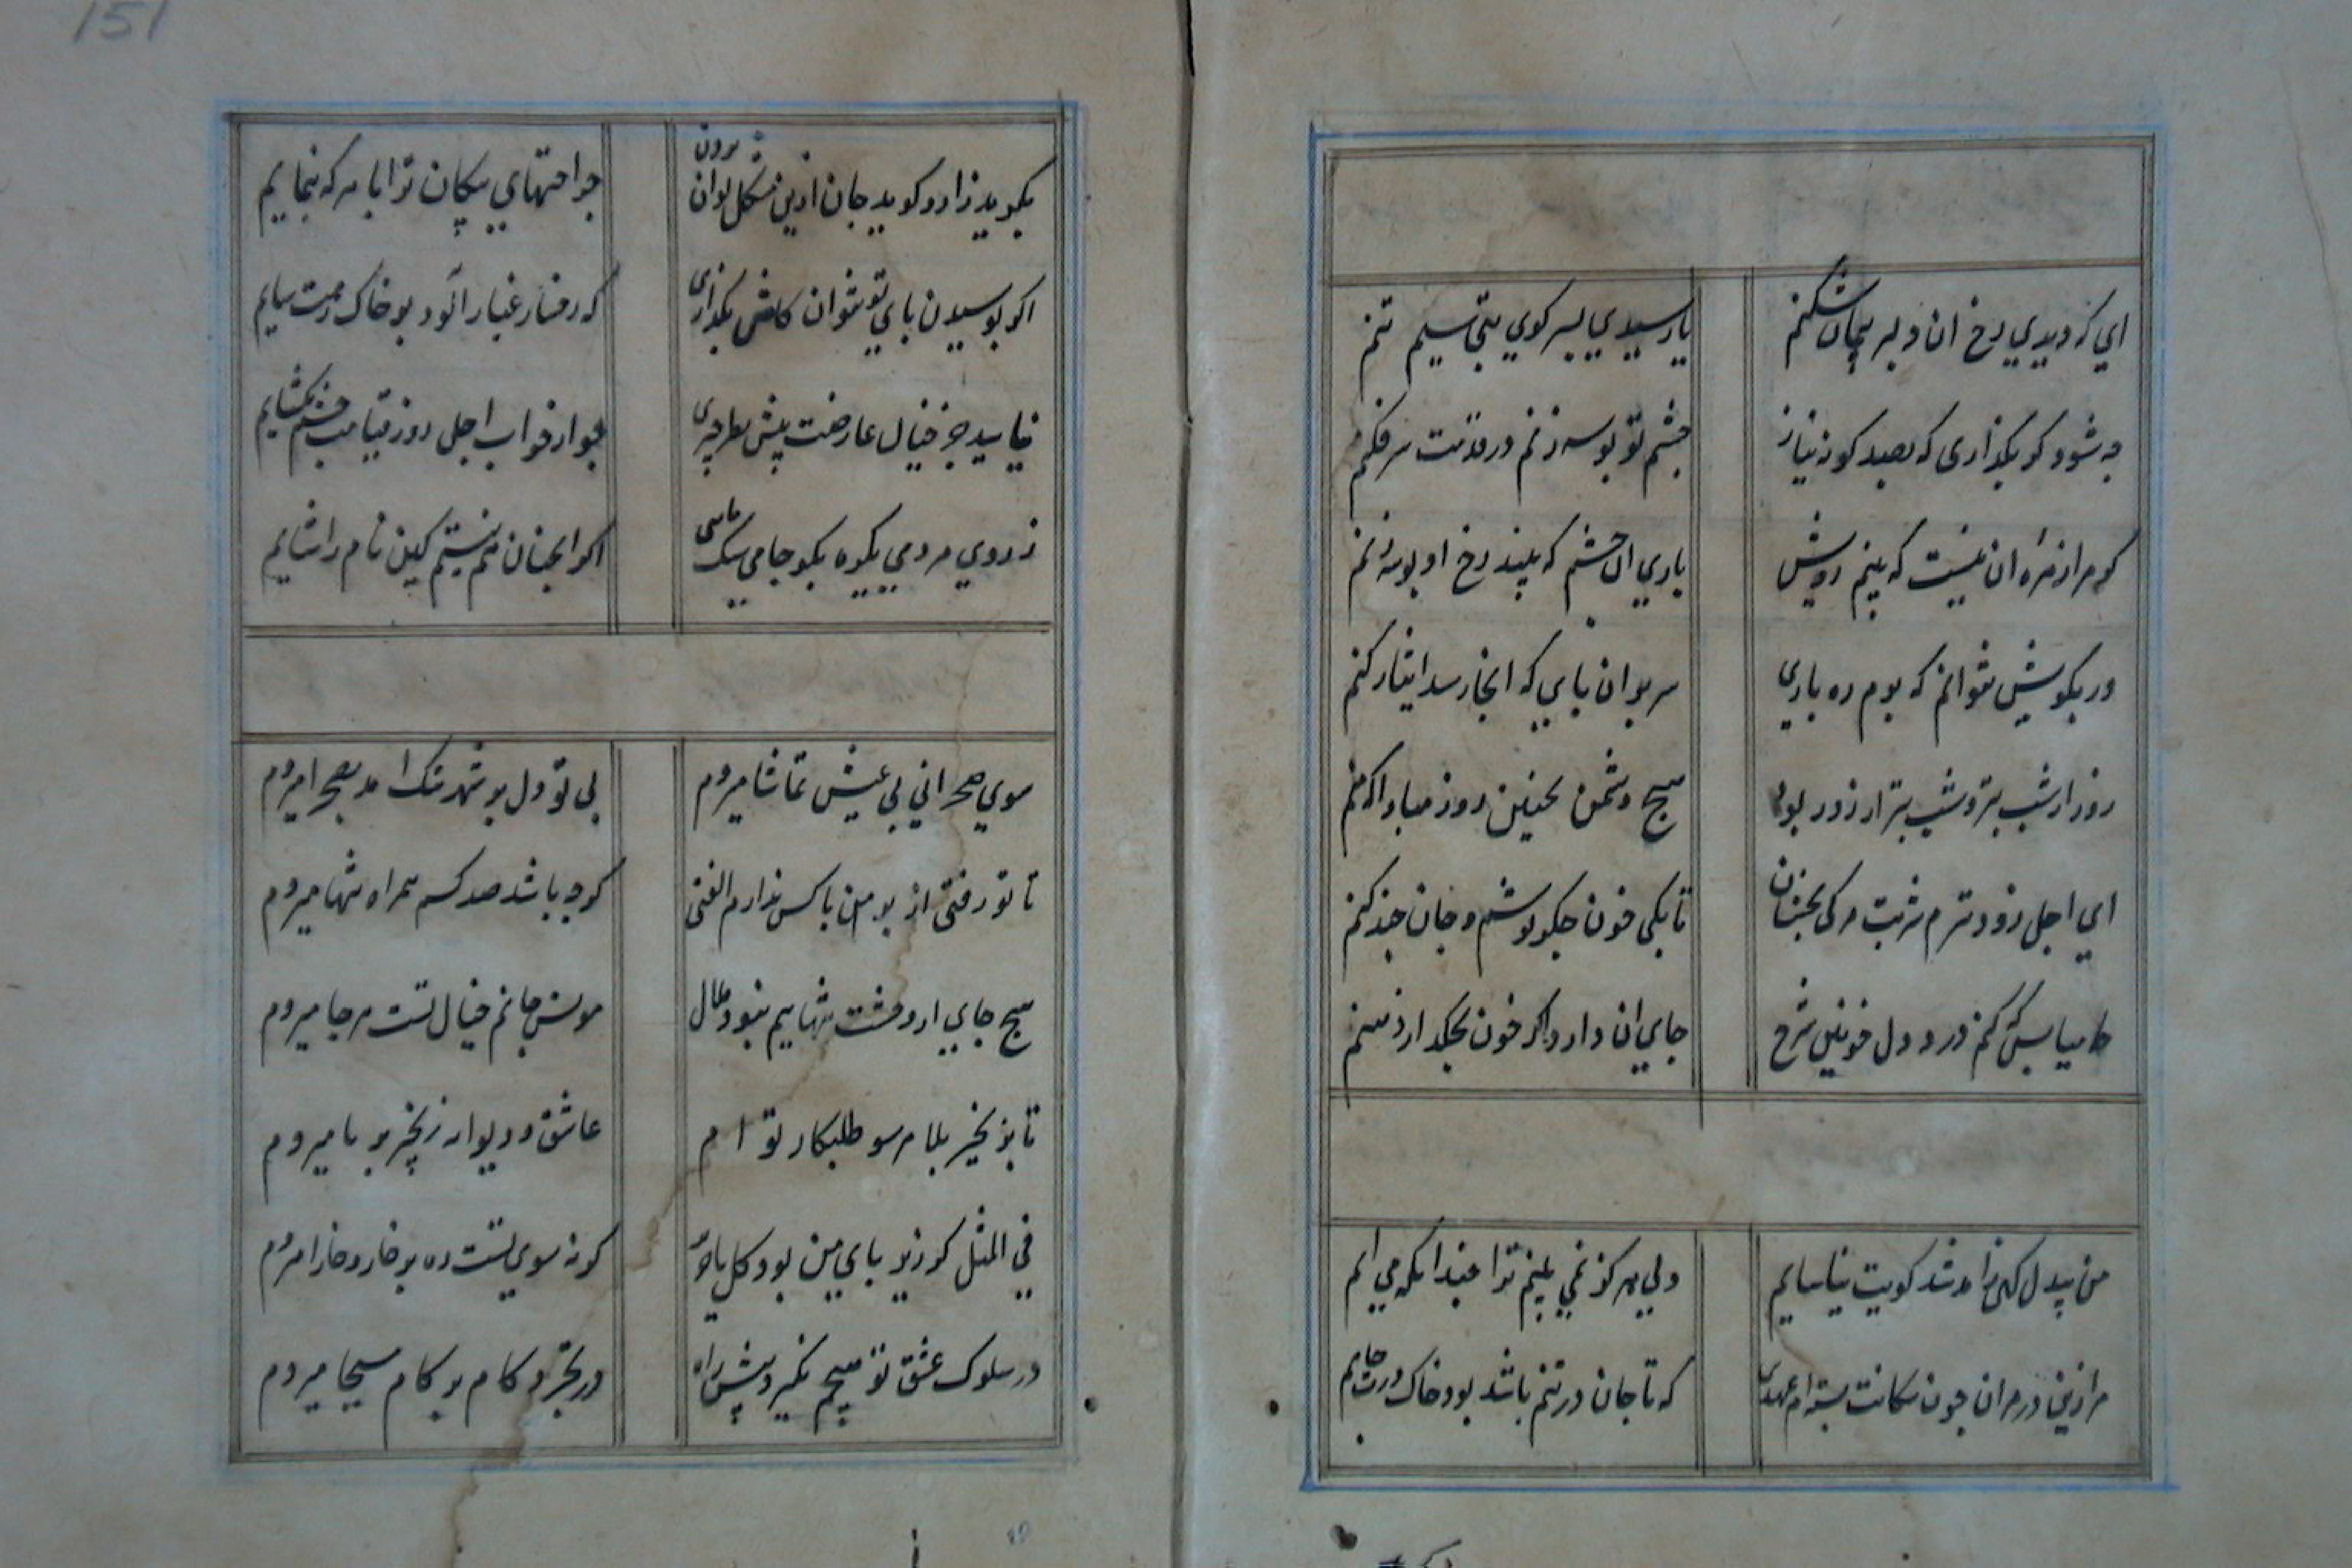 ای که دیدی رخ آن دلبر پیمان شکنم
یا رسیدی بسر کوی بت سیم تنم
چه شود گر بگذاری که بصد گونه نیاز
چشم تو بوسه زنم در قدمت سر فکنم
گر مرا زهره آن نیست که بینم رویش
باری آن چشم که بیند رخ او بوسه زنم
ور بکویش نتوانم که برم ره باری
سر بران پای که آنجا رسد ایثار کنم
روز از شب بتر و شب بتر از روز بود
هیچ دشمن بچنین روز مبادا که منم
ای اجل زودترم شربت مرگی بچشان
تا بکی خون جگر نوشم و جان چند کنم
جامیا بس که کنم درد دل خونین شرح
جای آن دارد اگر خون بچکد از سخنم
من بیدل کزین سان شد کویت نیاسایم
ولی هرگز نمی بینم ترا چندانکه می آیم
مرا زین در مران چون با سگانت بسته ام عهدی
که تا جان در تنم باشد بود خاک درت جایم
151
بگوید راز و گوید جان ازین مشکل توان بردن
جراحتهای پیکان ترا با هر که بنمایم
اگر بوسیدن پای تو نتوان کاش بگذاری
که رخسار غبار آلود بر خاک رهت سایم
نیاید جز خیال عارضت پیش نظر چیزی
چو از خواب اجل روز قیامت چشم بگشایم
ز روی مردمی یکره بگو جامی سگ مایی
اگر چه آنچنان هم نیستم کین نام را شایم
بی تو دل بر شهر تنگ آمد بصحرا میروم
سوی صحرا نی پی عیش و تماشا میروم
تا تو رفتی از بر من با کس ندارم الفتی
گرچه باشد صد کسم همراه تنها میروم
هیچ جایی از وحشت تنهاییم نبود ملال
مونس جانم خیال تست هر جا میروم
تا بزنجیر بلا هر سو طلبکار تو ام
عاشق و دیوانه زنجیر بر پا میروم
فی المثل گر زیر پای من بود گل یا حریر
گر نه سوی تست ره بر خار و خارا میروم
در سلوک عشق تو هیچم نگیرد پیش راه
در تجرد گام بر گام مسیحا میروم